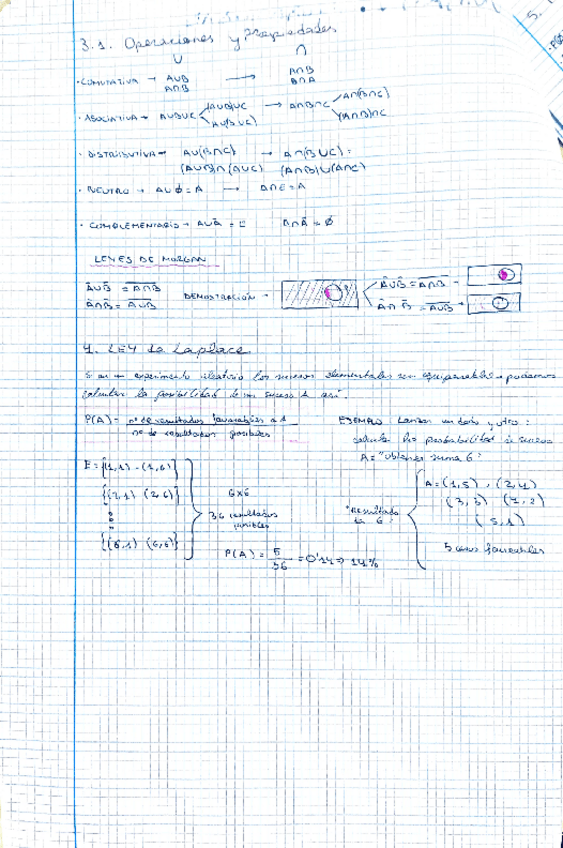 3.1. Operaciones y Propiedades
∪ ∩
· CONMUTATIVA → A∪B → A∩B
A∩B B∩A
· ASOCIATIVA → A∪B∪C (A∪B)∪C → A∩B∩C A∩(B∩C)
A∪(B∪C) (A∩B)∩C
· DISTRIBUTIVA → A∪(B∩C) → A∩(B∪C) =
(A∪B)∩(A∪C) (A∩B)∪(A∩C)
· NEUTRO → A∪∅ = A → A∩E = A
· COMPLEMENTARIO → A∪Ā = E A∩Ā = ∅
LEYES DE MORGAN
Ā∪B̄ = \overline{A∩B} DEMOSTRACIÓN → Ā∪B̄ = \overline{A∩B} →
Ā∩B̄ = \overline{A∪B} Ā∩B̄ = \overline{A∪B} →
4. LEY de Laplace
Si en un experimento aleatorio los sucesos elementales son equiprobables → podemos
calcular la posibilidad de un suceso A así.
P(A) = nº de resultados favorables a A
nº de resultados posibles
EJEMPLO Lanzar un dado y otro :
calcula la probabilidad de suceso
A = "obtener suma 6 :
E = {(1,1) - (1,6)}
{(2,1) (2,6)}
{(6,1) (6,6)}
6x6
36 resultados
posibles
"Resultado
es 6 :
A = (1,5) , (2,4)
(3,3)
(5,1)
5 casos favorables
P(A) = 5/36 = 0'14 ⇒ 14%
5.